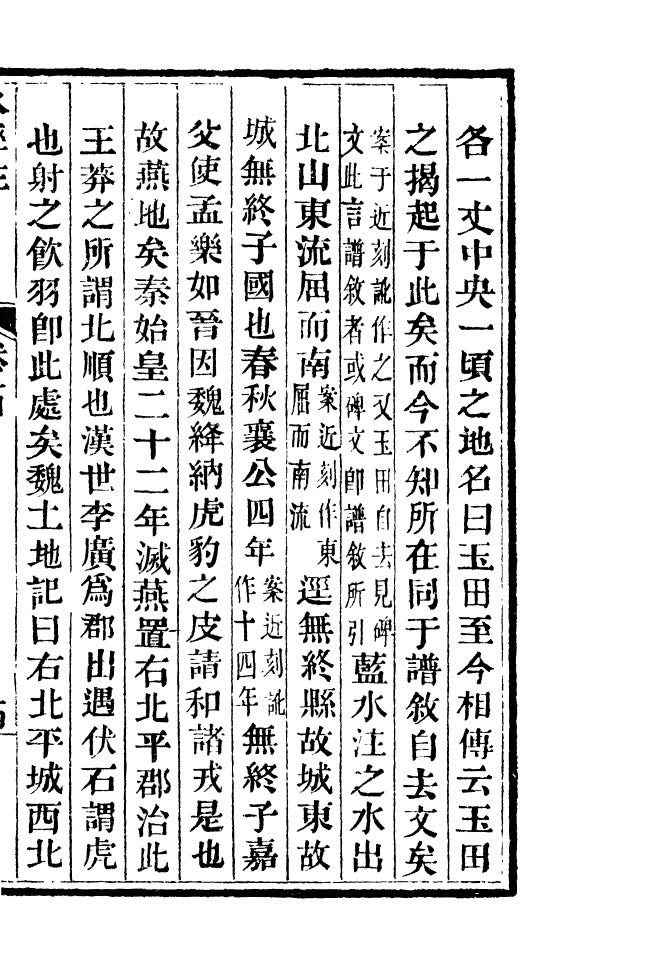 各一丈中央一頃之地名曰玉田至今相傳云玉田
之揭起于此矣而今不知所在同于譜敘自去文矣
案于近刻訛作之又玉田自去見碑
文此言譜敘者或碑文卽譜敘所引
藍水注之水出
北山東流屈而南
案近刻作東
屈而南流
逕無終縣故城東故
城無終子國也春秋襄公四年
案近刻訛
作十四年
無終子嘉
父使孟樂如晉因魏絳納虎豹之皮請和諸戎是也
故燕地矣秦始皇二十二年滅燕置右北平郡治此
王莽之所謂北順也漢世李廣爲郡出遇伏石謂虎
也射之飮羽卽此處矣魏土地記曰右北平城西北